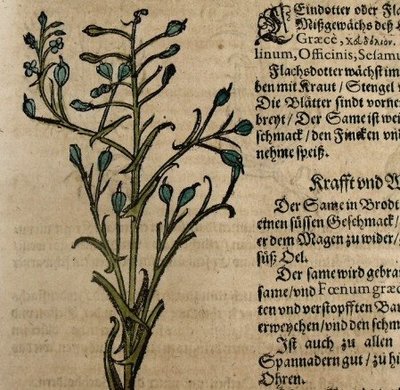 Eindotter oder Fla
Mißgewächs deß
Græcè,
linum, Officinis, Sesam
Flachsdotter wächst im
ben mit Kraut / Stengel
Die Blätter sindt vorne
breyt / Der Same ist wei
schmack / den Fincken vn
nehme speiß.
Krafft vnd
Der Same in Brodt
einen süssen Geschmack /
er dem Magen zu wider /
süß Oel.
Der same wird gebra
same / vnd Fœnumgræc
ten vnd verstopfften Ba
erweychen / vnd den schm
Ist auch zu allen
Spannadern gut / zu hi
Ohren.